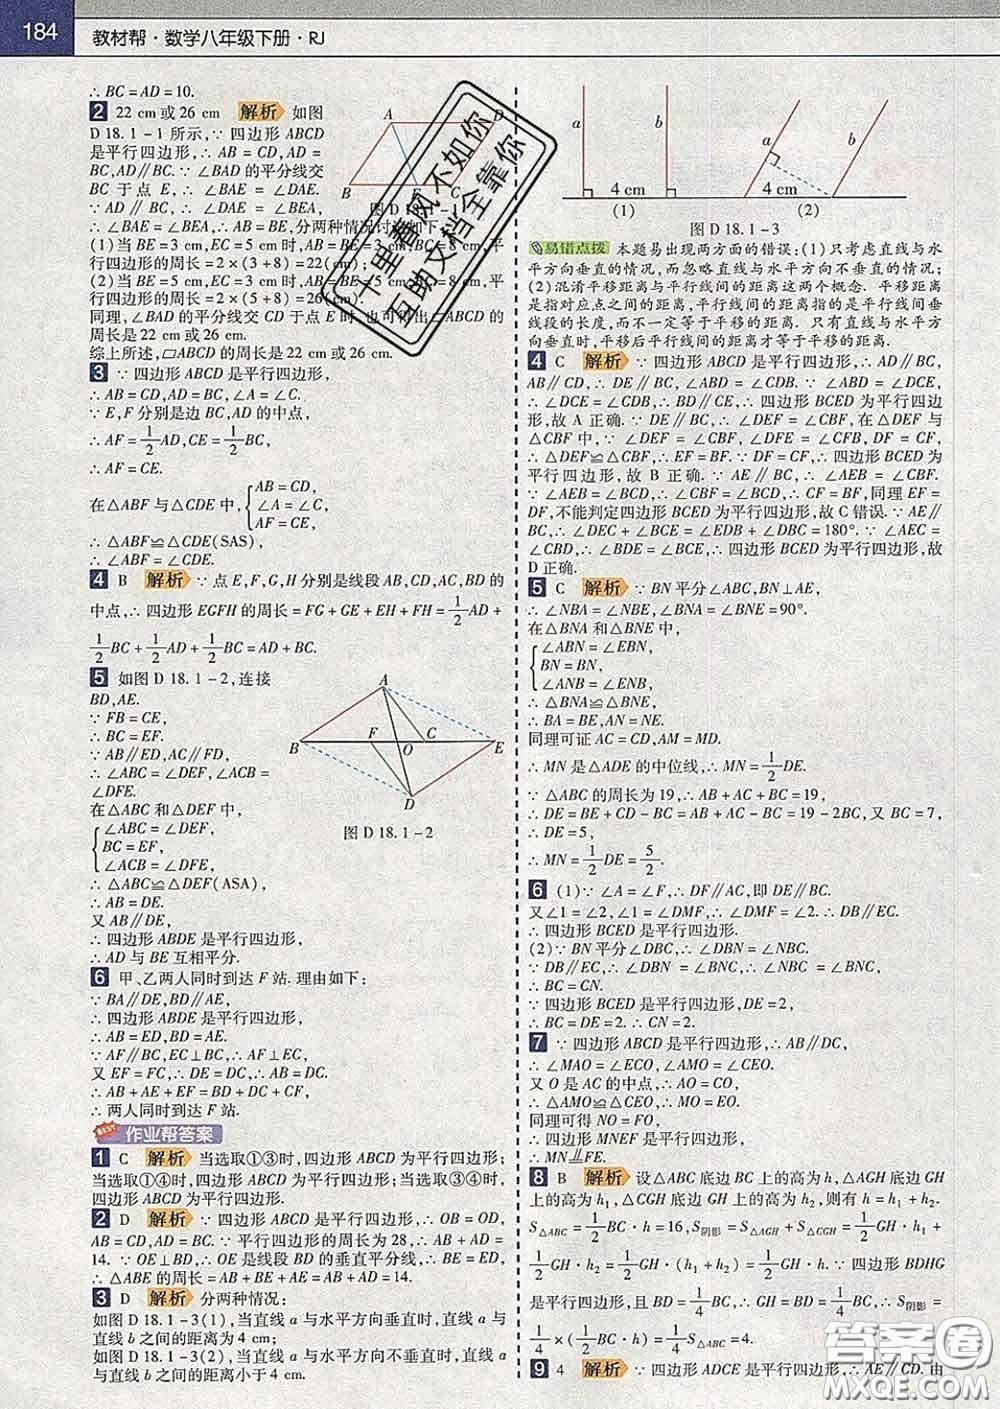 184 教材帮·数学八年级下册·RJ
∴ BC = AD = 10.
2 22 cm 或 26 cm 解析 如图
D 18.1-1 所示,∵ 四边形 ABCD
是平行四边形,∴ AB = CD, AD =
BC, AD∥BC. ∵ ∠BAD 的平分线交
BC 于点 E, ∴ ∠BAE = ∠DAE.
∵ AD∥BC, ∴ ∠DAE = ∠BEA,
∴ ∠BAE = ∠BEA, ∴ AB = BE, 分两种情况讨论如下:
(1) 当 BE = 3 cm, EC = 5 cm 时, AB = 3 cm, BC = 8 cm, 平
行四边形的周长 = 2 × (3 + 8) = 22(cm);
(2) 当 BE = 5 cm, EC = 3 cm 时, AB = 5 cm, BC = 8 cm, 平
行四边形的周长 = 2 × (5 + 8) = 26(cm).
同理, ∠BAD 的平分线交 CD 于点 E 时, 也可得出▱ABCD 的
周长是 22 cm 或 26 cm.
综上所述, ▱ABCD 的周长是 22 cm 或 26 cm.
A D
B E C
图 D 18.1-1
3 ∵ 四边形 ABCD 是平行四边形,
∴ AB = CD, AD = BC, ∠A = ∠C.
∵ E, F 分别是边 BC, AD 的中点,
∴ AF = 1/2 AD, CE = 1/2 BC,
∴ AF = CE.
在△ABF 与△CDE 中, { AB = CD,
∠A = ∠C,
AF = CE,
∴ △ABF≌△CDE(SAS),
∴ ∠ABF = ∠CDE.
4 B 解析 ∵ 点 E, F, G, H 分别是线段 AB, CD, AC, BD 的
中点, ∴ 四边形 EGFH 的周长 = FG + GE + EH + FH = 1/2 AD +
1/2 BC + 1/2 AD + 1/2 BC = AD + BC.
5 如图 D 18.1-2, 连接
BD, AE.
∵ FB = CE,
∴ BC = EF.
∵ AB∥ED, AC∥FD,
∴ ∠ABC = ∠DEF, ∠ACB =
∠DFE.
在△ABC 和△DEF 中,
{ ∠ABC = ∠DEF,
BC = EF,
∠ACB = ∠DFE,
∴ △ABC≌△DEF(ASA),
∴ AB = DE.
又 AB∥DE,
∴ 四边形 ABDE 是平行四边形,
∴ AD 与 BE 互相平分.
A
B F O C E
D
图 D 18.1-2
6 甲、乙两人同时到达 F 站. 理由如下:
∵ BA∥DE, BD∥AE,
∴ 四边形 ABDE 是平行四边形,
∴ AB = ED, BD = AE.
∵ AF∥BC, EC⊥BC, ∴ AF⊥EC,
又 EF = FC, ∴ DE = DC, ∴ AB = DC,
∴ AB + AE + EF = BD + DC + CF,
∴ 两人同时到达 F 站.
BEST 作业帮答案
1 C 解析 当选取①③时, 四边形 ABCD 为平行四边形;
当选取①④时, 四边形 ABCD 为平行四边形; 当选取③④时,
四边形 ABCD 为平行四边形.
2 D 解析 ∵ 四边形 ABCD 是平行四边形, ∴ OB = OD,
AB = CD, AD = BC. ∵ 平行四边形的周长为 28, ∴ AB + AD =
14. ∵ OE⊥BD, ∴ OE 是线段 BD 的垂直平分线, ∴ BE = ED,
∴ △ABE 的周长 = AB + BE + AE = AB + AD = 14.
3 D 解析 分两种情况:
如图 D 18.1-3(1), 当直线 a 与水平方向垂直时, 直线 a 与
直线 b 之间的距离为 4 cm;
如图 D 18.1-3(2), 当直线 a 与水平方向不垂直时, 直线 a
与直线 b 之间的距离小于 4 cm.
a b a b
4 cm 4 cm
(1) (2)
图 D 18.1-3
易错点拨 本题易出现两方面的错误: (1) 只考虑直线与水
平方向垂直的情况, 而忽略直线与水平方向不垂直的情况;
(2) 混淆平移距离与平行线间的距离这两个概念. 平移距离
是指对应点之间的距离, 平行线间的距离指的是平行线间垂
线段的长度, 而不一定等于平移的距离. 只有直线与水平方
向垂直时, 平移后平行线间的距离才等于平移的距离.
4 C 解析 ∵ 四边形 ABCD 是平行四边形, ∴ AD∥BC,
AB∥CD, ∴ DE∥BC, ∠ABD = ∠CDB. ∵ ∠ABD = ∠DCE,
∴ ∠DCE = ∠CDB, ∴ BD∥CE, ∴ 四边形 BCED 为平行四边
形, 故 A 正确. ∵ DE∥BC, ∴ ∠DEF = ∠CBF, 在△DEF 与
△CBF 中, ∵ ∠DEF = ∠CBF, ∠DFE = ∠CFB, DF = CF,
∴ △DEF≌△CBF, ∴ EF = BF. ∵ DF = CF, ∴ 四边形 BCED 为
平行四边形, 故 B 正确. ∵ AE∥BC, ∴ ∠AEB = ∠CBF.
∵ ∠AEB = ∠BCD, ∴ ∠CBF = ∠BCD, ∴ CF = BF, 同理 EF =
DF, 不能判定四边形 BCED 为平行四边形, 故 C 错误. ∵ AE∥
BC, ∴ ∠DEC + ∠BCE = ∠EDB + ∠DBC = 180°. ∵ ∠AEC =
∠CBD, ∴ ∠BDE = ∠BCE, ∴ 四边形 BCED 为平行四边形, 故
D 正确.
5 C 解析 ∵ BN 平分∠ABC, BN⊥AE,
∴ ∠NBA = ∠NBE, ∠BNA = ∠BNE = 90°.
在△BNA 和△BNE 中,
{ ∠ABN = ∠EBN,
BN = BN,
∠ANB = ∠ENB,
∴ △BNA≌△BNE,
∴ BA = BE, AN = NE.
同理可证 AC = CD, AM = MD.
∴ MN 是△ADE 的中位线, ∴ MN = 1/2 DE.
∵ △ABC 的周长为 19, ∴ AB + AC + BC = 19,
∴ DE = BE + CD - BC = AB + AC - BC = 19 - 2BC, 又 BC = 7,
∴ DE = 5,
∴ MN = 1/2 DE = 5/2.
6 (1) ∵ ∠A = ∠F, ∴ DF∥AC, 即 DE∥BC.
又∠1 = ∠2, ∠1 = ∠DMF, ∴ ∠DMF = ∠2. ∴ DB∥EC.
∴ 四边形 BCED 是平行四边形.
(2) ∵ BN 平分∠DBC, ∴ ∠DBN = ∠NBC.
∵ DB∥EC, ∴ ∠DBN = ∠BNC, ∴ ∠NBC = ∠BNC,
∴ BC = CN.
∵ 四边形 BCED 是平行四边形, DE = 2,
∴ BC = DE = 2. ∴ CN = 2.
7 ∵ 四边形 ABCD 是平行四边形, ∴ AB∥DC,
∴ ∠MAO = ∠ECO, ∠AMO = ∠CEO.
又 O 是 AC 的中点, ∴ AO = CO,
∴ △AMO≌△CEO, ∴ MO = EO.
同理可得 NO = FO,
∴ 四边形 MNEF 是平行四边形,
∴ MN∥FE.
8 B 解析 设△ABC 底边 BC 上的高为 h, △AGH 底边 GH
上的高为 h₁, △CGH 底边 GH 上的高为 h₂, 则有 h = h₁ + h₂.
S△ABC = 1/2 BC·h = 16, S阴影 = S△AGH + S△CGH = 1/2 GH·h₁ +
1/2 GH·h₂ = 1/2 GH·(h₁ + h₂) = 1/2 GH·h. ∵ 四边形 BDHG
是平行四边形, 且 BD = 1/4 BC, ∴ GH = BD = 1/4 BC, ∴ S阴影 =
1/4 × (1/2 BC·h) = 1/4 S△ABC = 4.
9 4 解析 ∵ 四边形 ADCE 是平行四边形, ∴ AE∥CD. 由
十里春风不如你
互助文档全靠你
答案圈
MXQE.COM